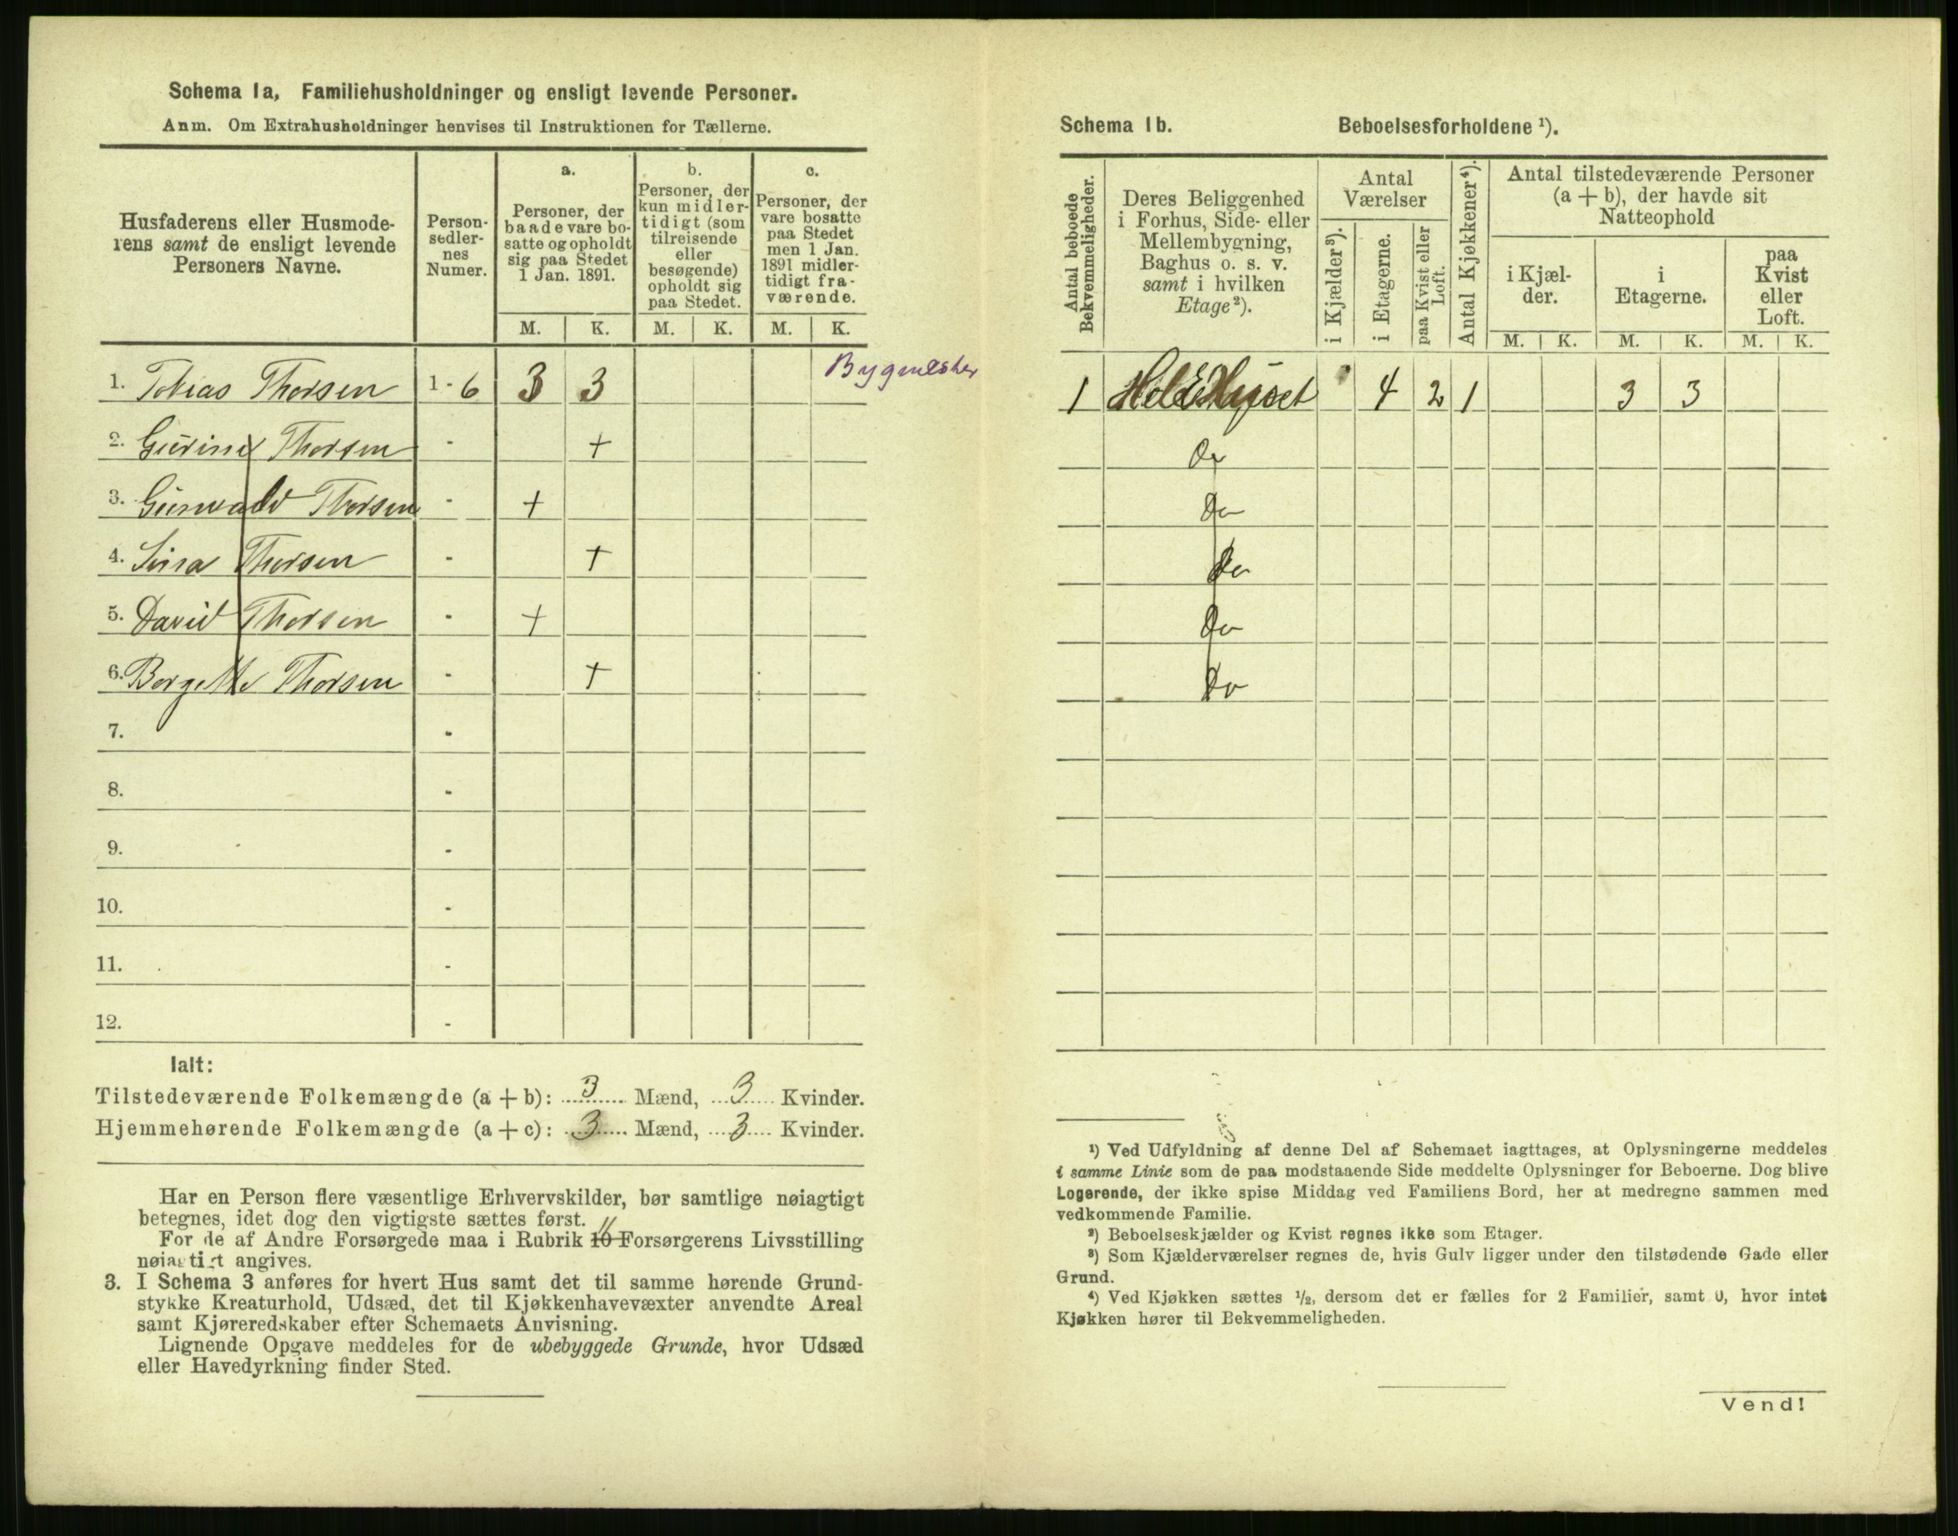 Schema Ia, Familiehusholdninger og ensligt levende Personer.
Anm. Om Extrahusholdninger henvises til Instruktionen for Tællerne.
Husfaderens eller Husmode-
rens samt de ensligt levende
Personers Navne.
Person-
sedler-
nes
Numer.
a.
Personer, der
baade vare bo-
satte og opholdt
sig paa Stedet
1 Jan. 1891.
b.
Personer, der
kun midler-
tidigt (som
tilreisende
eller
besøgende)
opholdt sig
paa Stedet.
c.
Personer, der
vare bosatte
paa Stedet
men 1 Jan.
1891 midler-
tidigt fra-
værende.
M. K. M. K. M. K.
Bygmester
1. Tobias Thorsen 1 - 6 3 3
2. Gurine Thorsen - +
3. Gunvald Thorsen - +
4. Sina Thorsen - +
5. David Thorsen - +
6. Borgette Thorsen - +
7. -
8. -
9. -
10. -
11. -
12. -
Ialt:
Tilstedeværende Folkemængde (a + b): 3 Mænd, 3 Kvinder.
Hjemmehørende Folkemængde (a + c): 3 Mænd, 3 Kvinder.
Har en Person flere væsentlige Erhvervskilder, bør samtlige nøiagtigt
betegnes, idet dog den vigtigste sættes først.
11
For de af Andre Forsørgede maa i Rubrik 10 Forsørgerens Livsstilling
nøiagtigt angives.
3. I Schema 3 anføres for hvert Hus samt det til samme hørende Grund-
stykke Kreaturhold, Udsæd, det til Kjøkkenhavevæxter anvendte Areal
samt Kjøreredskaber efter Schemaets Anvisning.
Lignende Opgave meddeles for de ubebyggede Grunde, hvor Udsæd
eller Havedyrkning finder Sted.
Schema Ib. Beboelsesforholdene ¹).
Antal beboede
Bekvemmeligheder.
Deres Beliggenhed
i Forhus, Side- eller
Mellembygning,
Baghus o. s. v.
samt i hvilken
Etage²).
Antal
Værelser
i Kjælder³).
i Etagerne.
paa Kvist eller
Loft.
Antal Kjøkkener⁴).
Antal tilstedeværende Personer
(a + b), der havde sit
Natteophold
i Kjæl-
der.
i
Etagerne.
paa
Kvist
eller
Loft.
M. K. M. K. M. K.
1 Hele Huset 4 2 1 3 3
Do
Do
Do
Do
Do
¹) Ved Udfyldning af denne Del af Schemaet iagttages, at Oplysningerne meddeles
i samme Linie som de paa modstaaende Side meddelte Oplysninger for Beboerne. Dog blive
Logerende, der ikke spise Middag ved Familiens Bord, her at medregne sammen med
vedkommende Familie.
²) Beboelseskjælder og Kvist regnes ikke som Etager.
³) Som Kjælderværelser regnes de, hvis Gulv ligger under den tilstødende Gade eller
Grund.
⁴) Ved Kjøkken sættes ½, dersom det er fælles for 2 Familier, samt 0, hvor intet
Kjøkken hører til Bekvemmeligheden.
Vend!